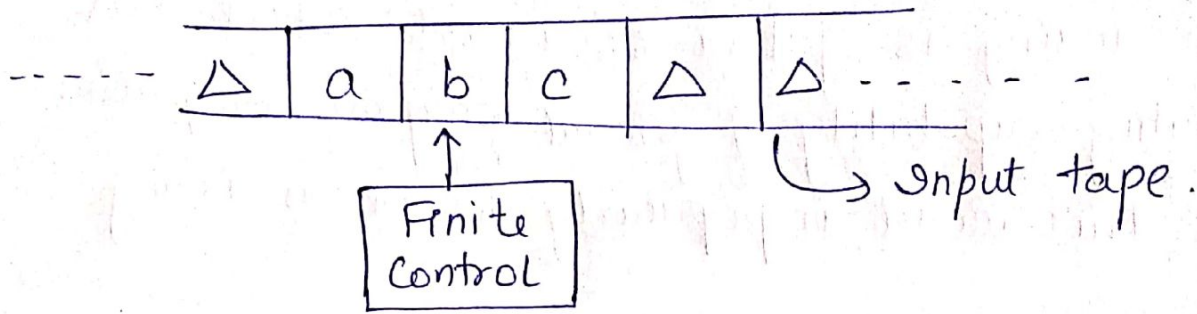 ----- Δ a b c Δ Δ - - - - - -
Input tape.
Finite
Control